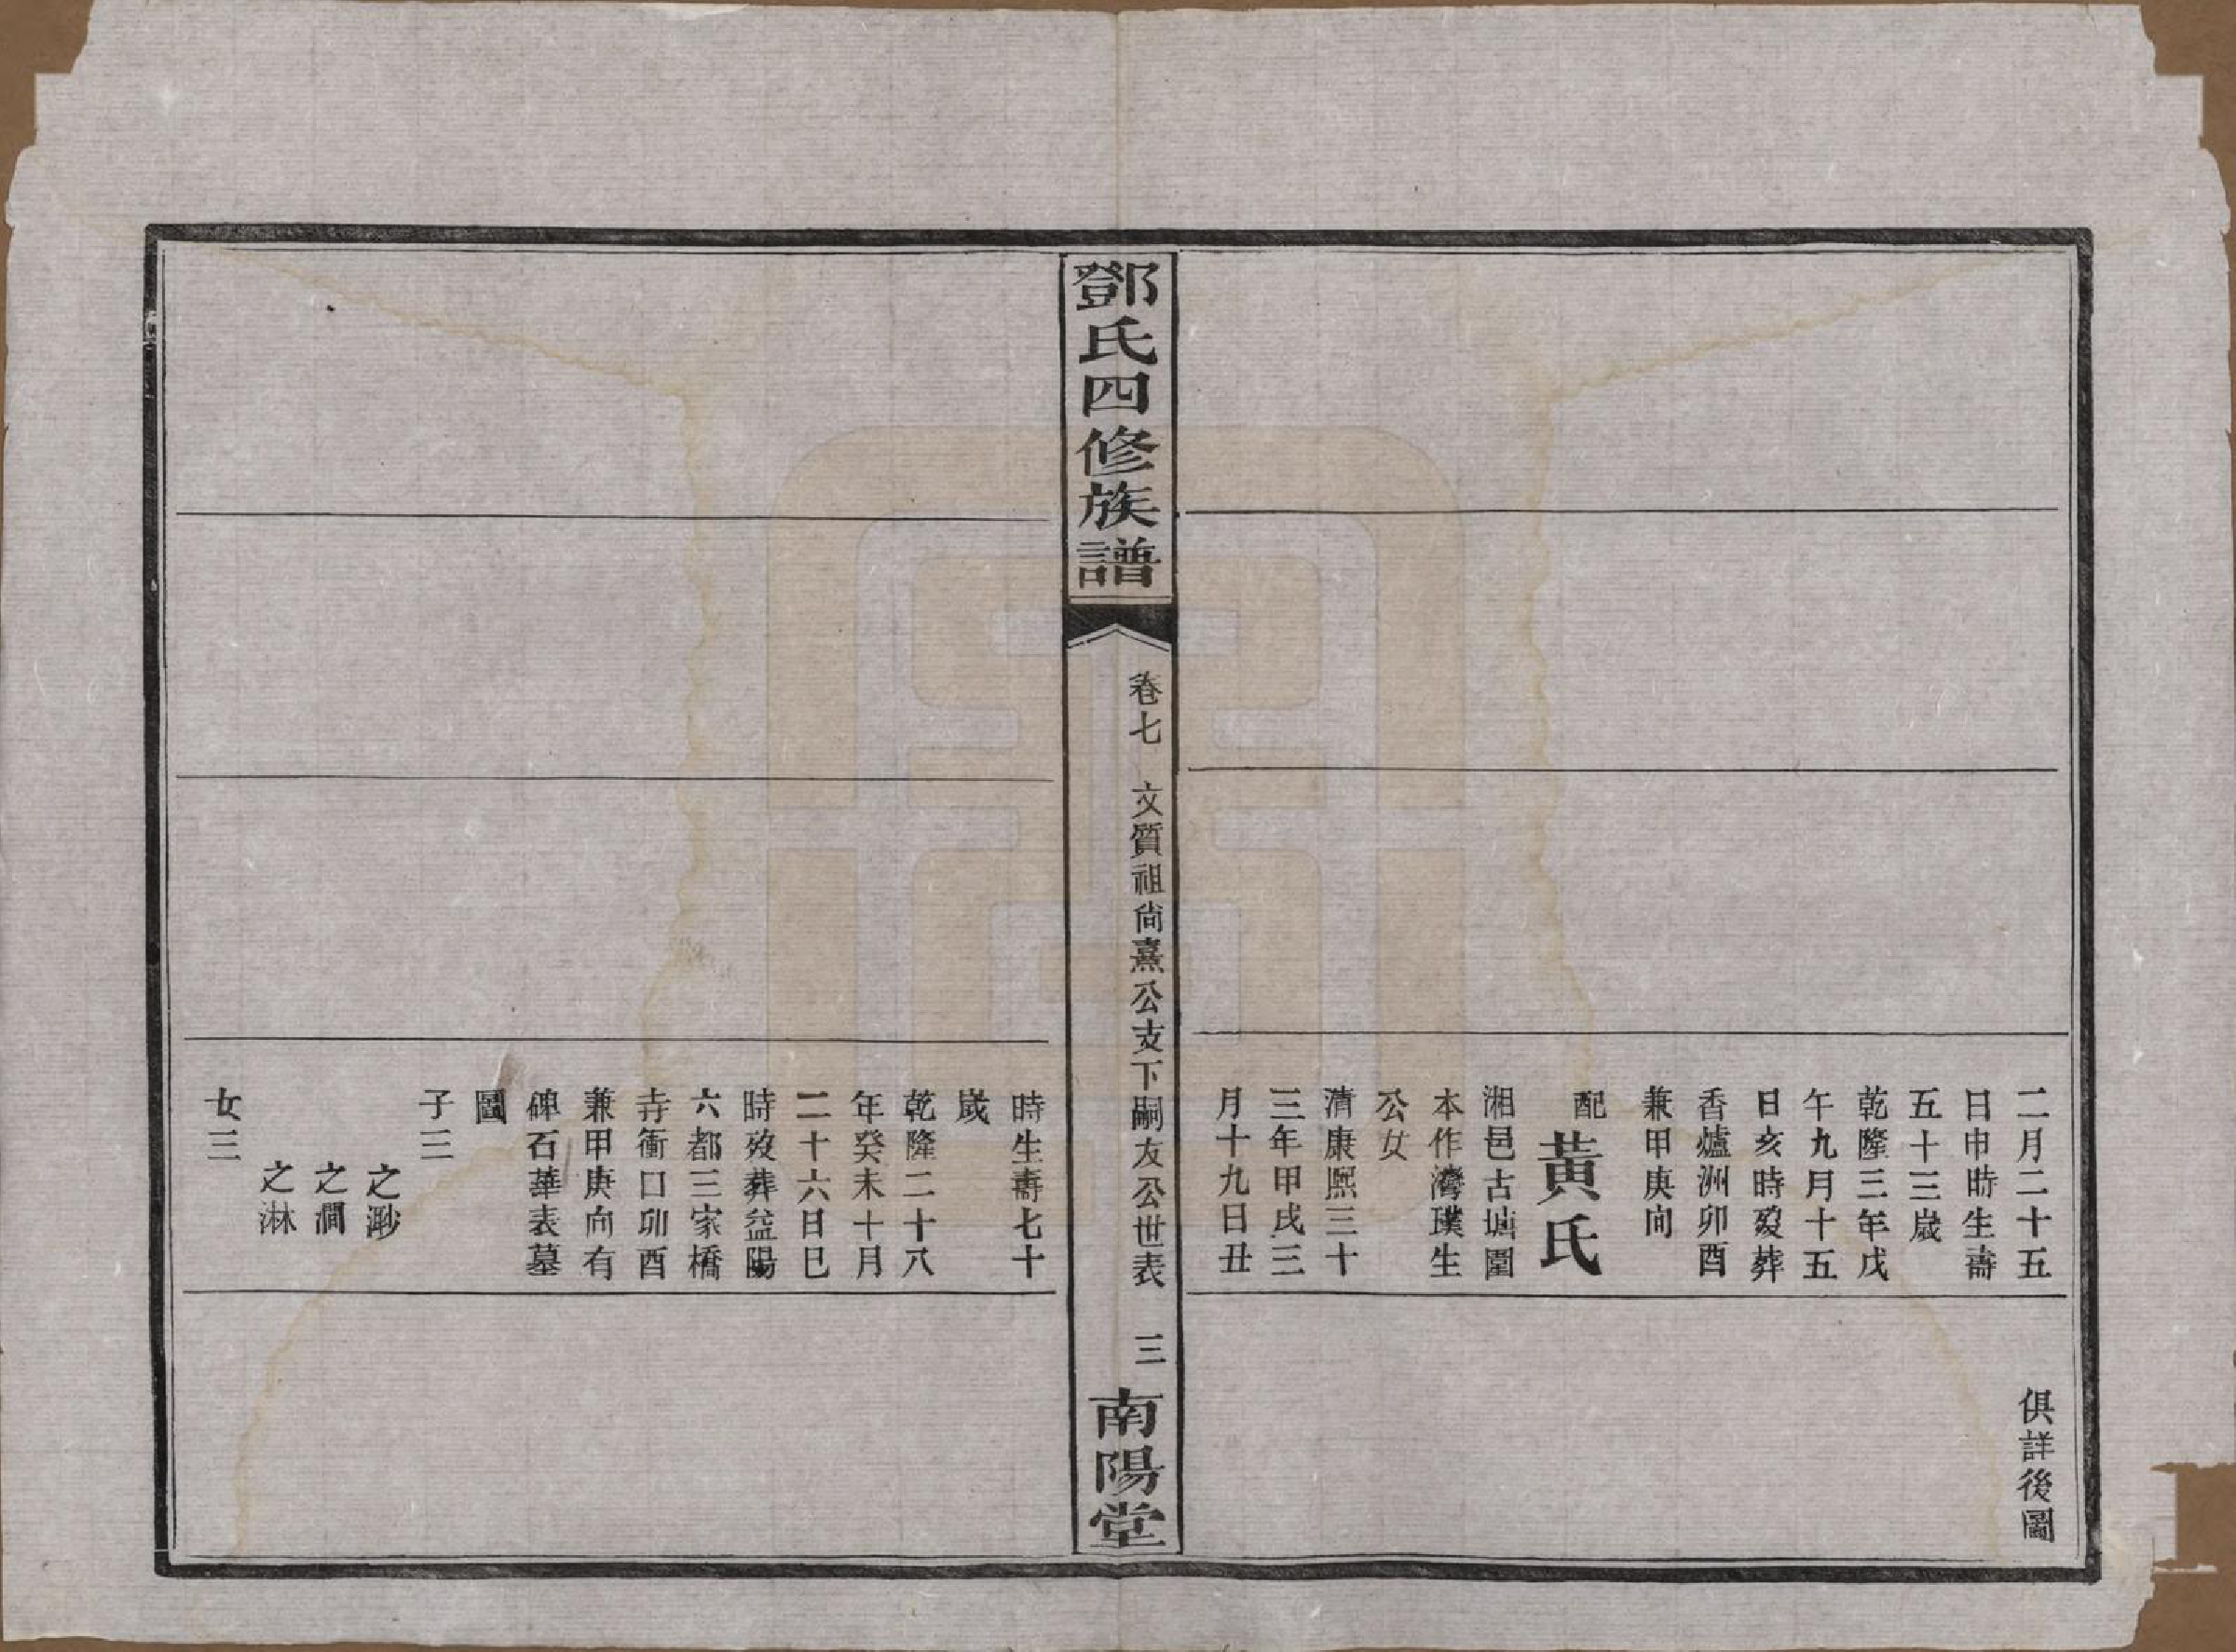 二月二十五
日申時生壽
五十三歲
乾隆三年戊
午九月十五
日亥時歿葬
香爐洲卯酉
兼甲庚向
配黃氏
湘邑古塘圍
本作灣璞生
公女
清康熙三十
三年甲戌三
月十九日丑
俱詳後圖
鄧氏四修族譜
卷七　文質祖尙熹公支下嗣友公世表　三
南陽堂
時生壽七十
歲
乾隆二十八
年癸未十月
二十六日巳
時歿葬益陽
六都三家橋
寺衝口卯酉
兼甲庚向有
碑石華表墓
圖
子三
之澥
之澗
之淋
女三